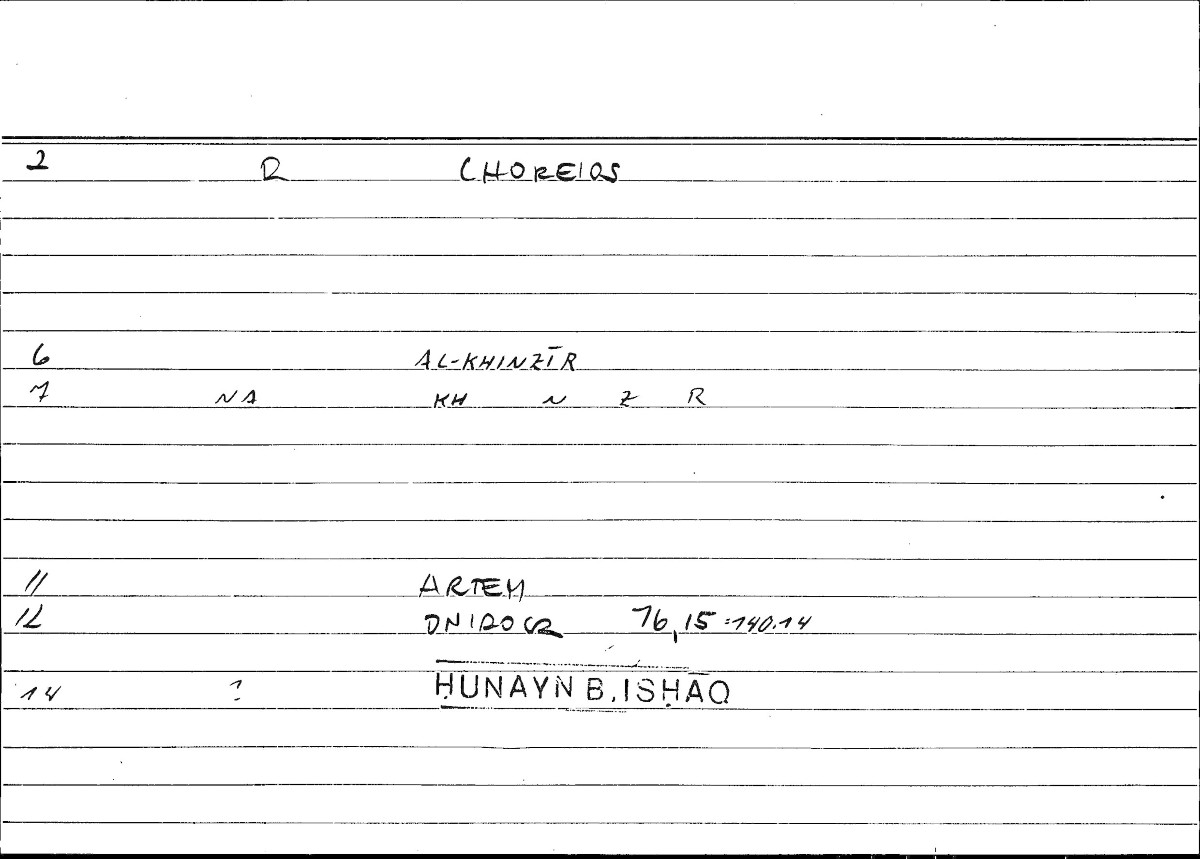 2 R CHOREIOS
6 AL-KHINZĪR
7 NA KH N Z R
11 ARTEM
12 ONIROCR 76,15 = 140.14
14 ? ḤUNAYN B. ISḤĀQ